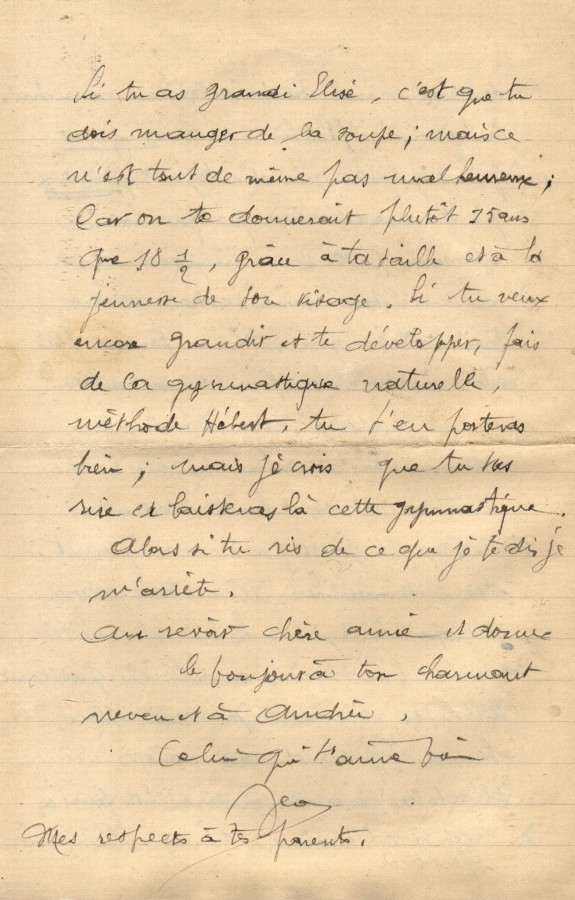 Si tu as grandi Elisé, c'est que tu
dois manger de la soupe ; mais ce
n'est tout de même pas malheureux ;
Car on te donnerait plutôt 15 ans
que 18 1/2, grâce à ta taille et à la
jeunesse de ton visage. Si tu veux
encore grandir et te développer, fais
de la gymnastique naturelle,
méthode Hébert, tu t'en porteras
bien ; mais je crois que tu vas
rire et laisseras là cette gymnastique.
Alors si tu ris de ce que je te dis je
m'arrête.
Au revoir chère amie et donne
le bonjour à ton charmant
neveu et à
Celui qui t'aime bien
Mes respects à tes parents.